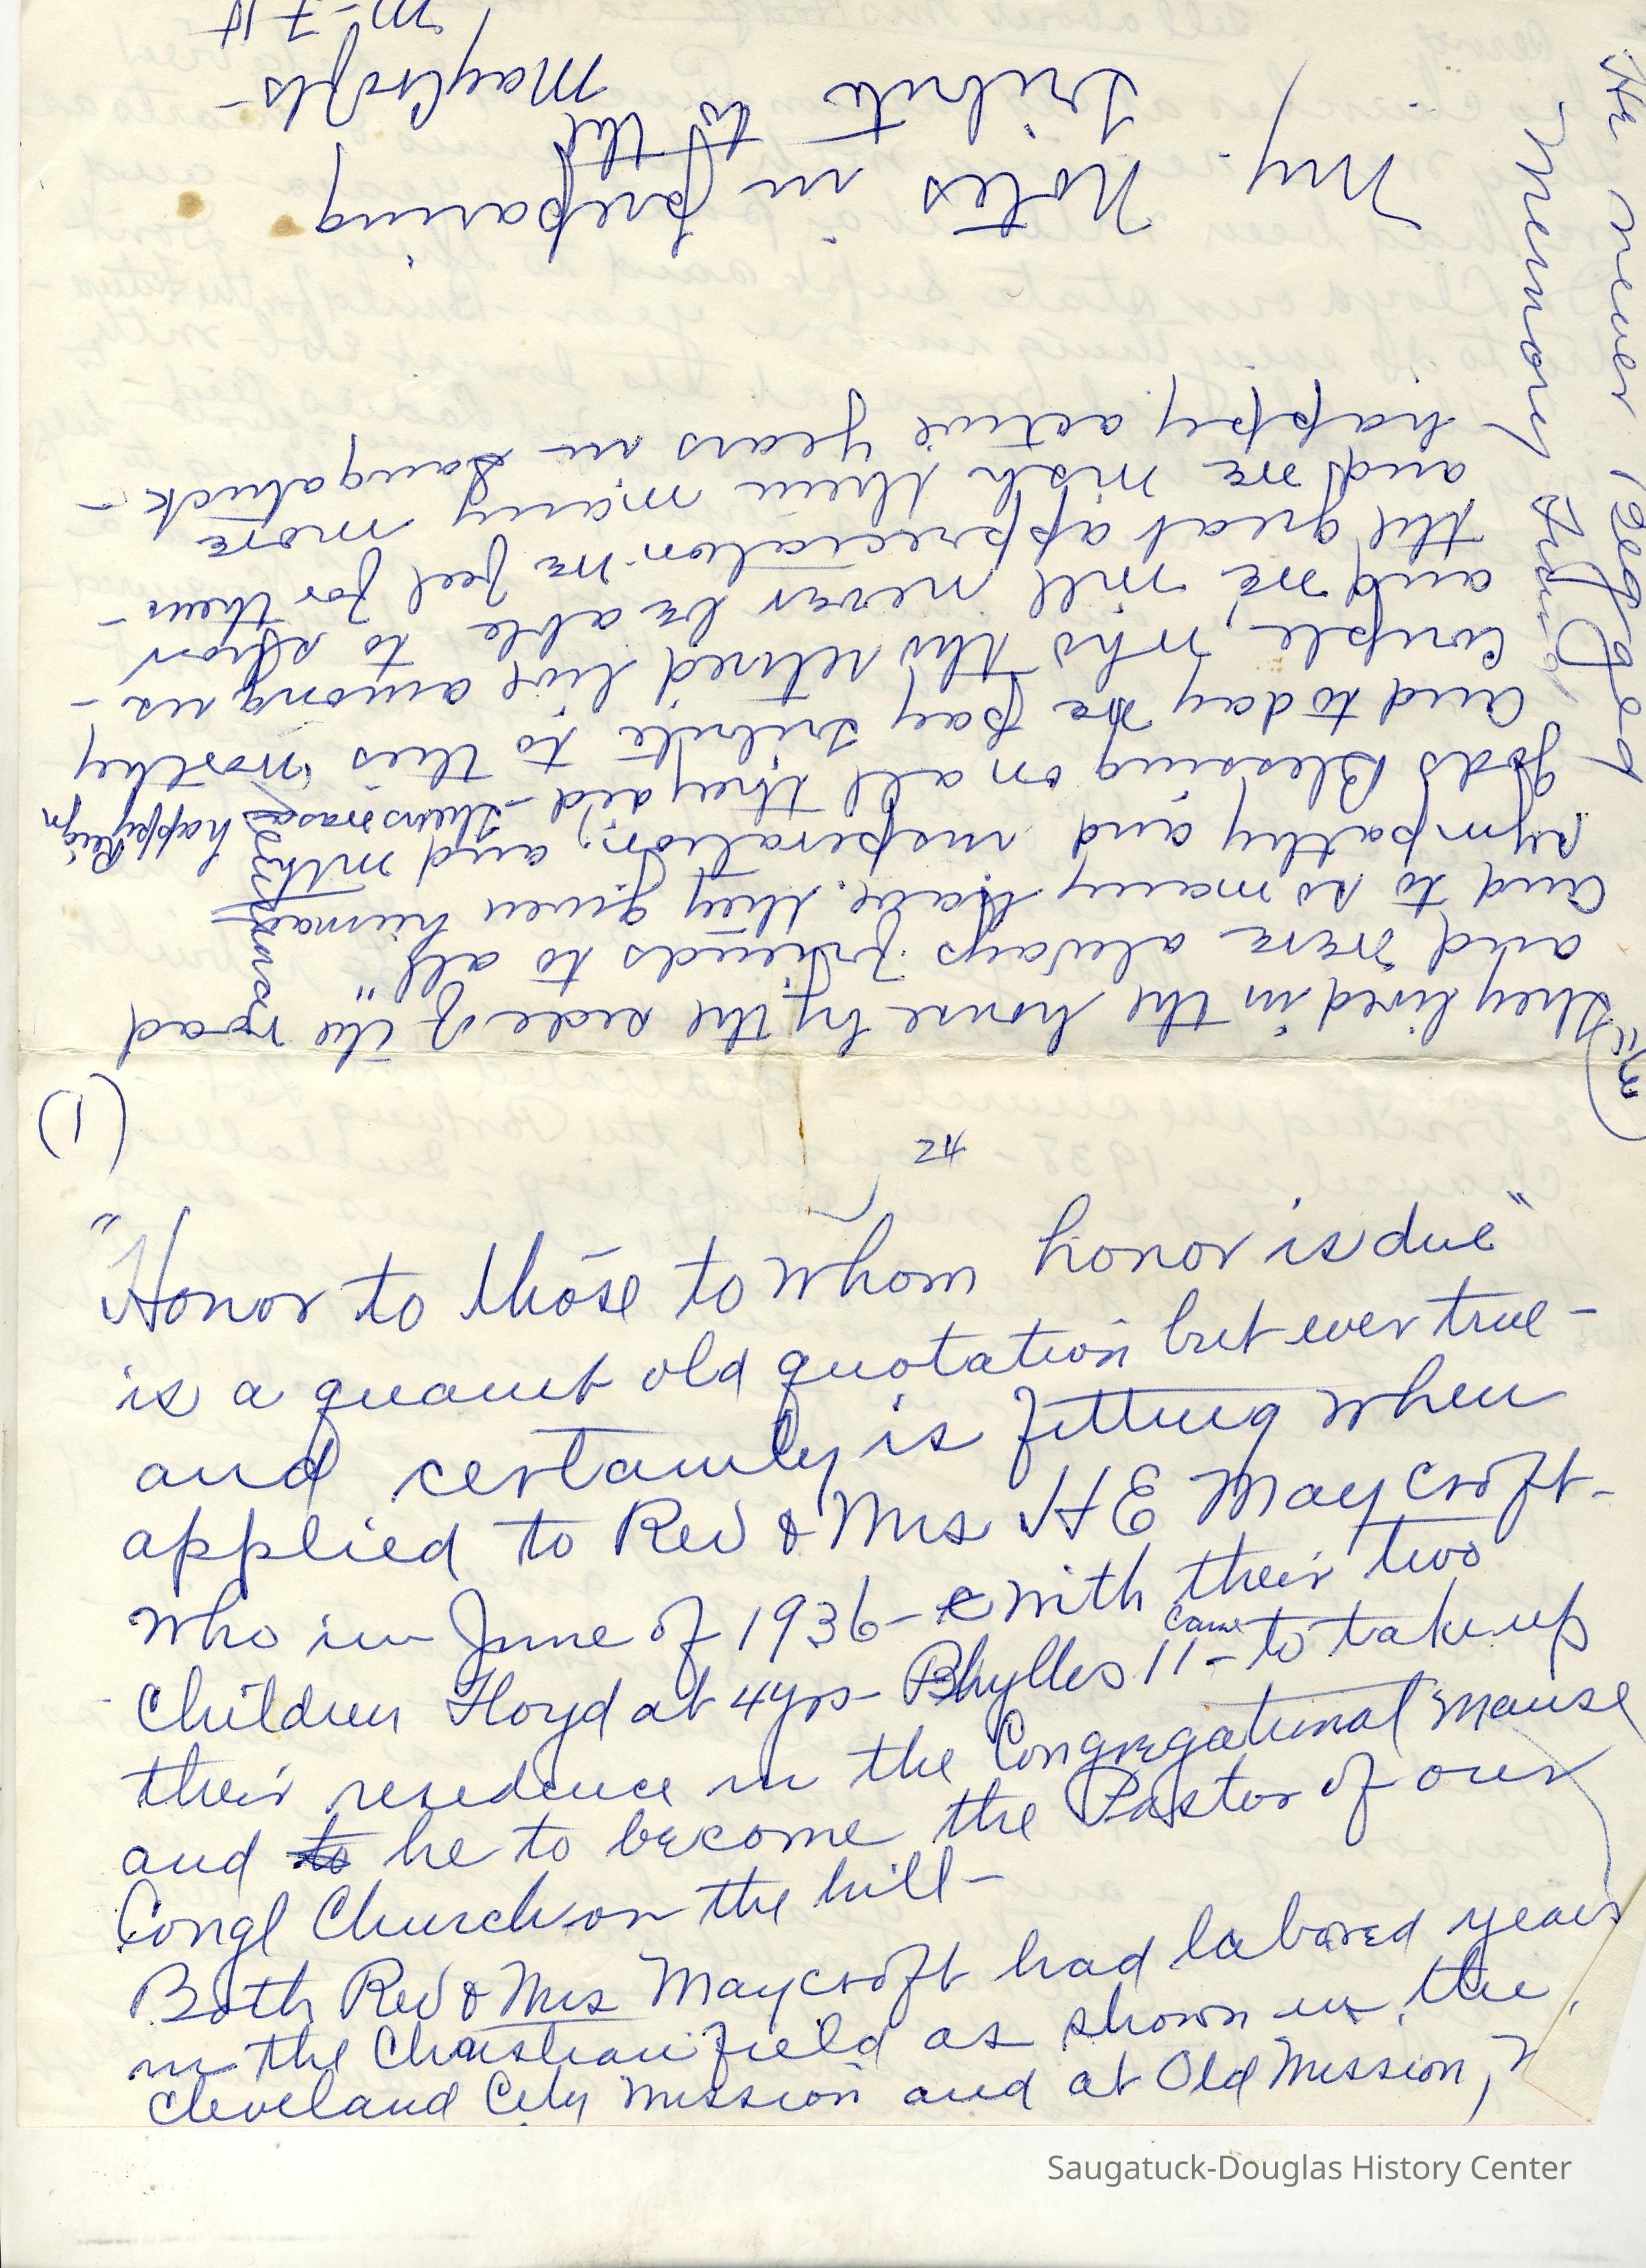 (1)
24
"Honor to those to whom honor is due"
is a quaint old quotation but ever true -
and certainly is fitting when
applied to Rev & Mrs H E Maycroft -
who in June of 1936 - with their two
Children Floyd at 4 yrs - Phylles 11 - came to take up
their residence in the Congregational Manse
and he to become the Pastor of our
Congl Church on the hill -
Both Rev & Mrs Maycroft had labored years
in the Christian field as shown in the
Cleveland City Mission and at Old Mission,
"They lived in the house by the side of the road
and were always friends to all"
and to so many have they given human
sympathy and inspiration, and with
gods Blessing on all they did - theirs was a happy Reign
and today we pay tribute to this worthy
couple, who tho retired live among us -
and we will never be able to show
the great appreciation we feel for them -
and we wish them many more
happy active years in Saugatuck -
My Notes in preparing
Tribute to the Maycrofts -
m-71
He never begged
Memory
Saugatuck-Douglas History Center